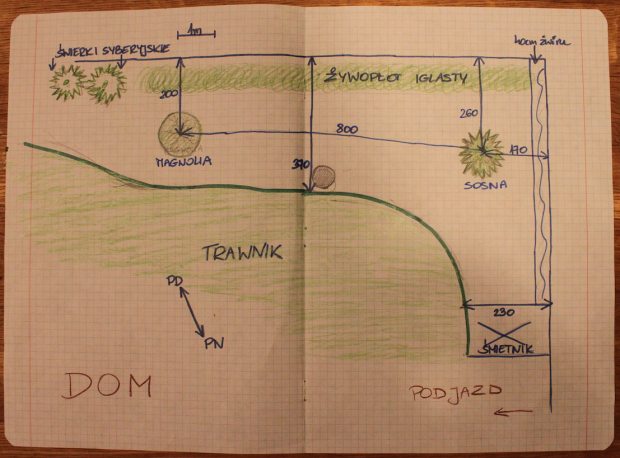 1m
40cm żwiru
ŚWIERKI SYBERYJSKIE
ŻYWOPŁOT IGLASTY
200
260
800
170
MAGNOLIA
370
SOSNA
TRAWNIK
PD
PN
230
ŚMIETNIK
DOM
PODJAZD